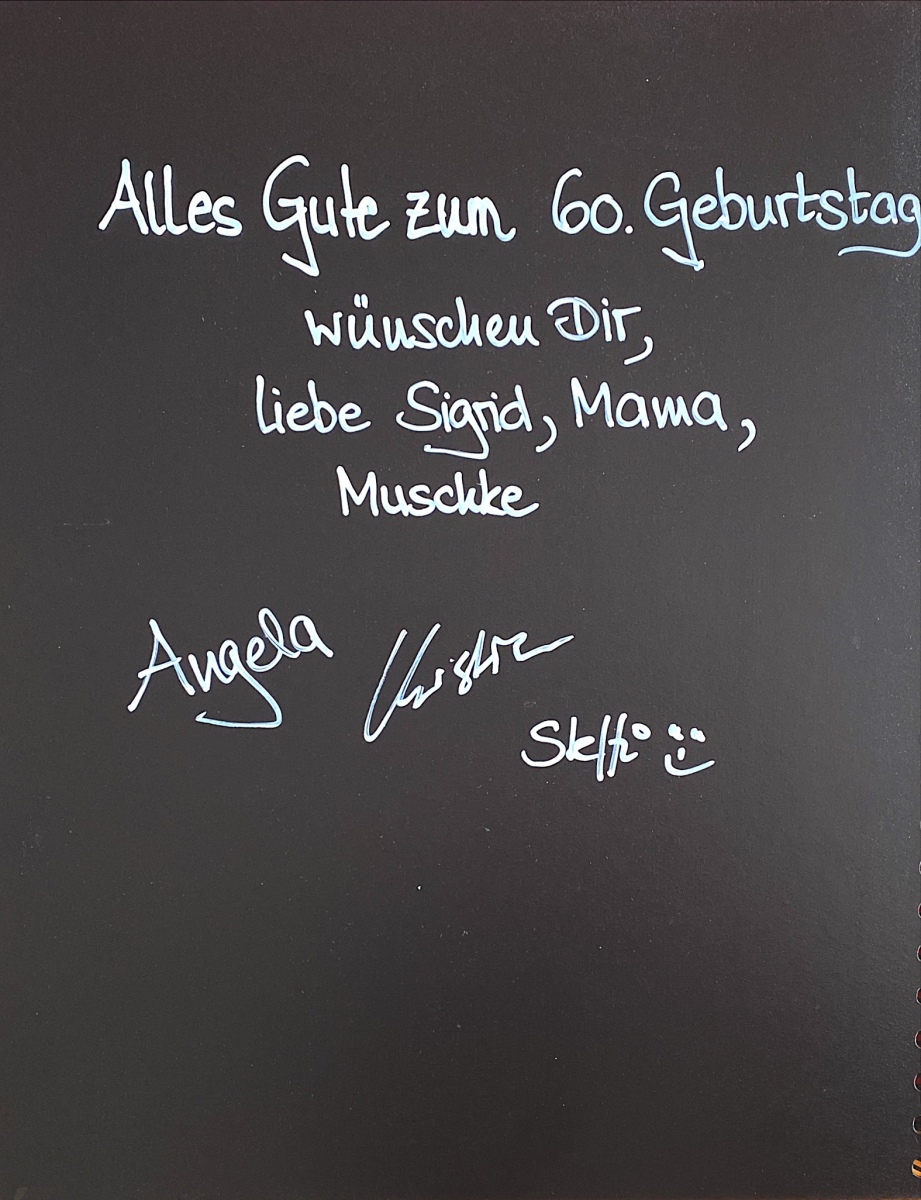 Alles Gute zum 60. Geburtstag
wünschen Dir,
liebe Sigrid, Mama,
Muschke
Angela
Steffi